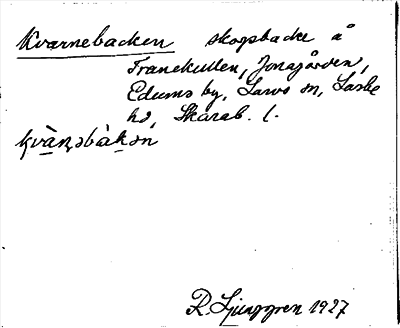 Kvarnebacken skogsbacke å
Tranekullen, Jonsgården,
Edums by, Larvs sn, Laske
hd, Skarab. l.
kvà̠ṇəbàk̠ən
R. Ljunggren 1927